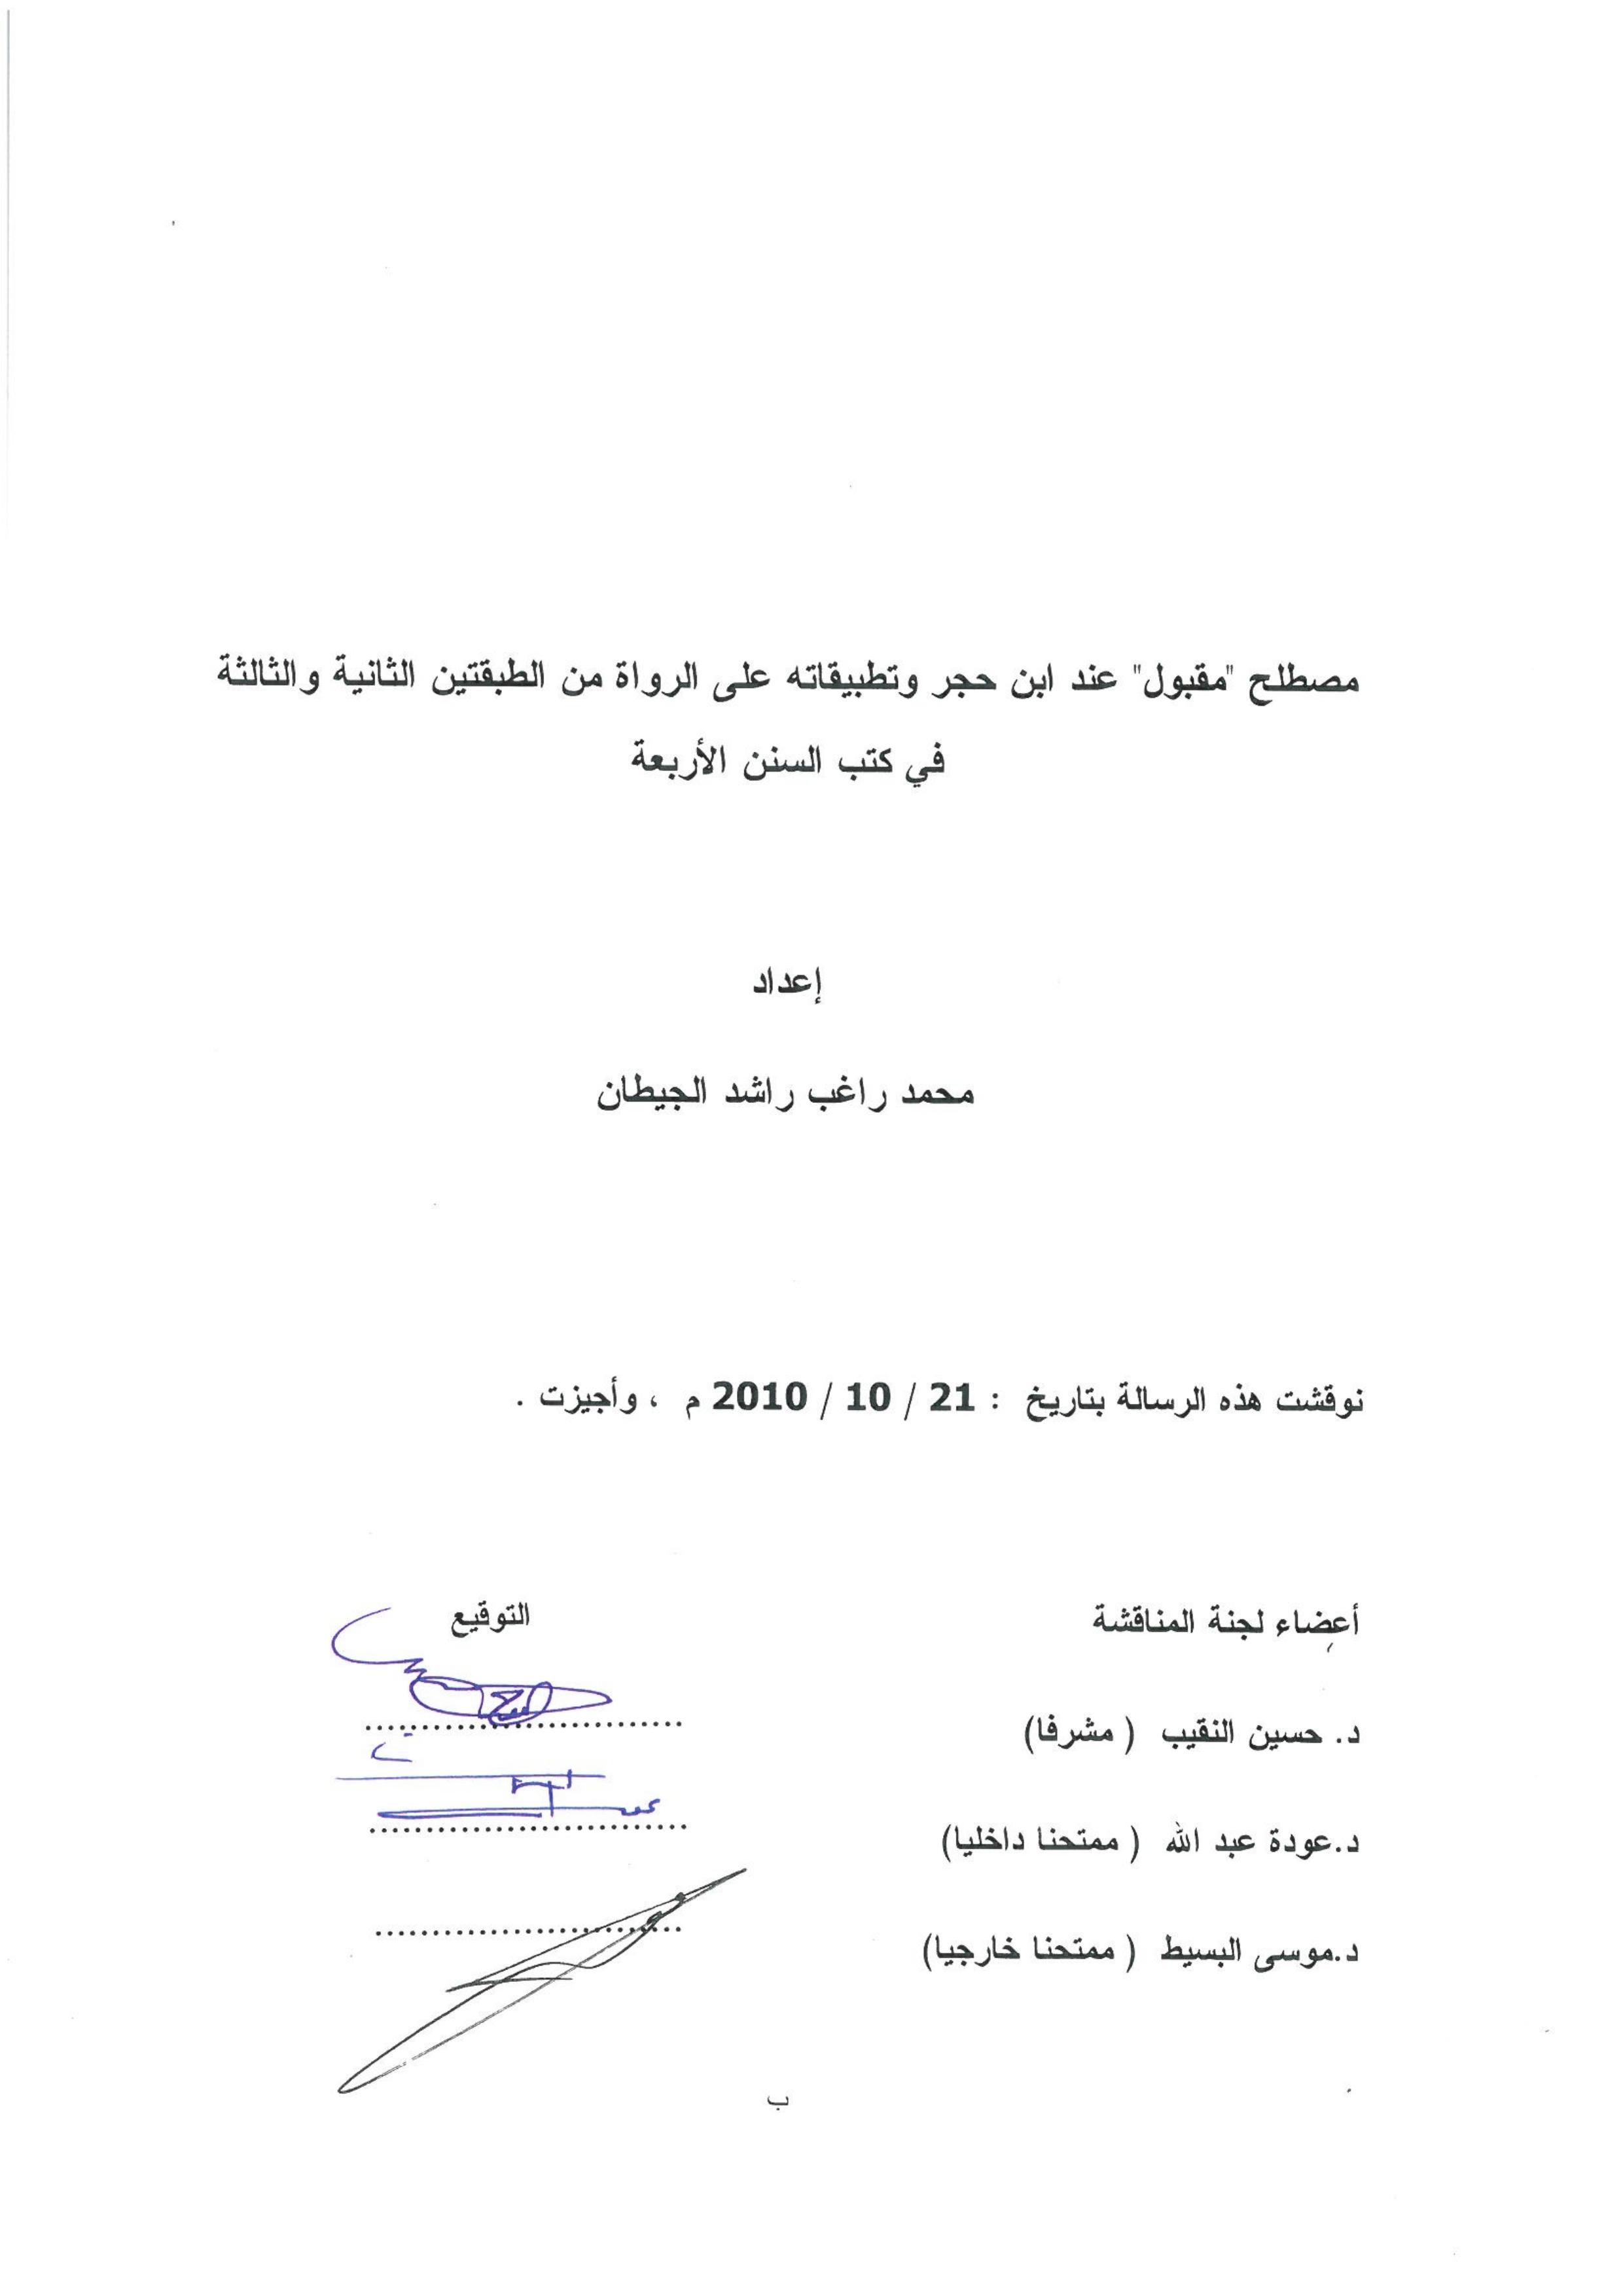 مصطلح "مقبول" عند ابن حجر وتطبيقاته على الرواة من الطبقتين الثانية والثالثة
في كتب السنن الأربعة
إعداد
محمد راغب راشد الجيطان
نوقشت هذه الرسالة بتاريخ : 21 / 10 / 2010 م ، وأجيزت .
أعضاء لجنة المناقشة التوقيع
د. حسين النقيب ( مشرفا) ..............................
د.عودة عبد الله ( ممتحنا داخليا) ..............................
د.موسى البسيط ( ممتحنا خارجيا) ..............................
ب